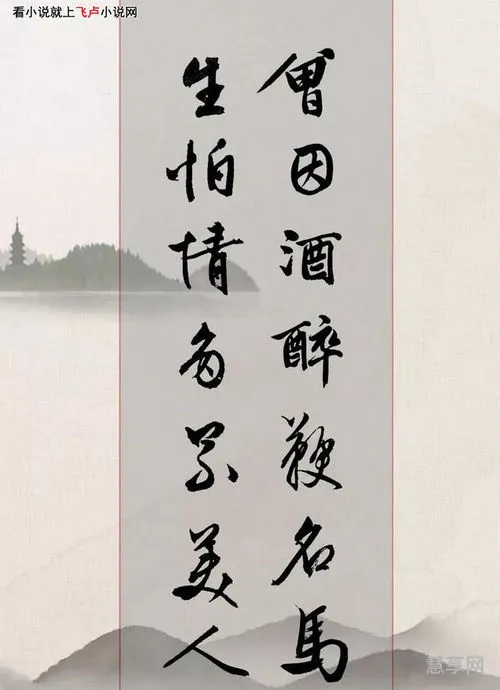 看小说就上飞卢小说网
曾因酒醉鞭名马
生怕情多累美人
慧享网